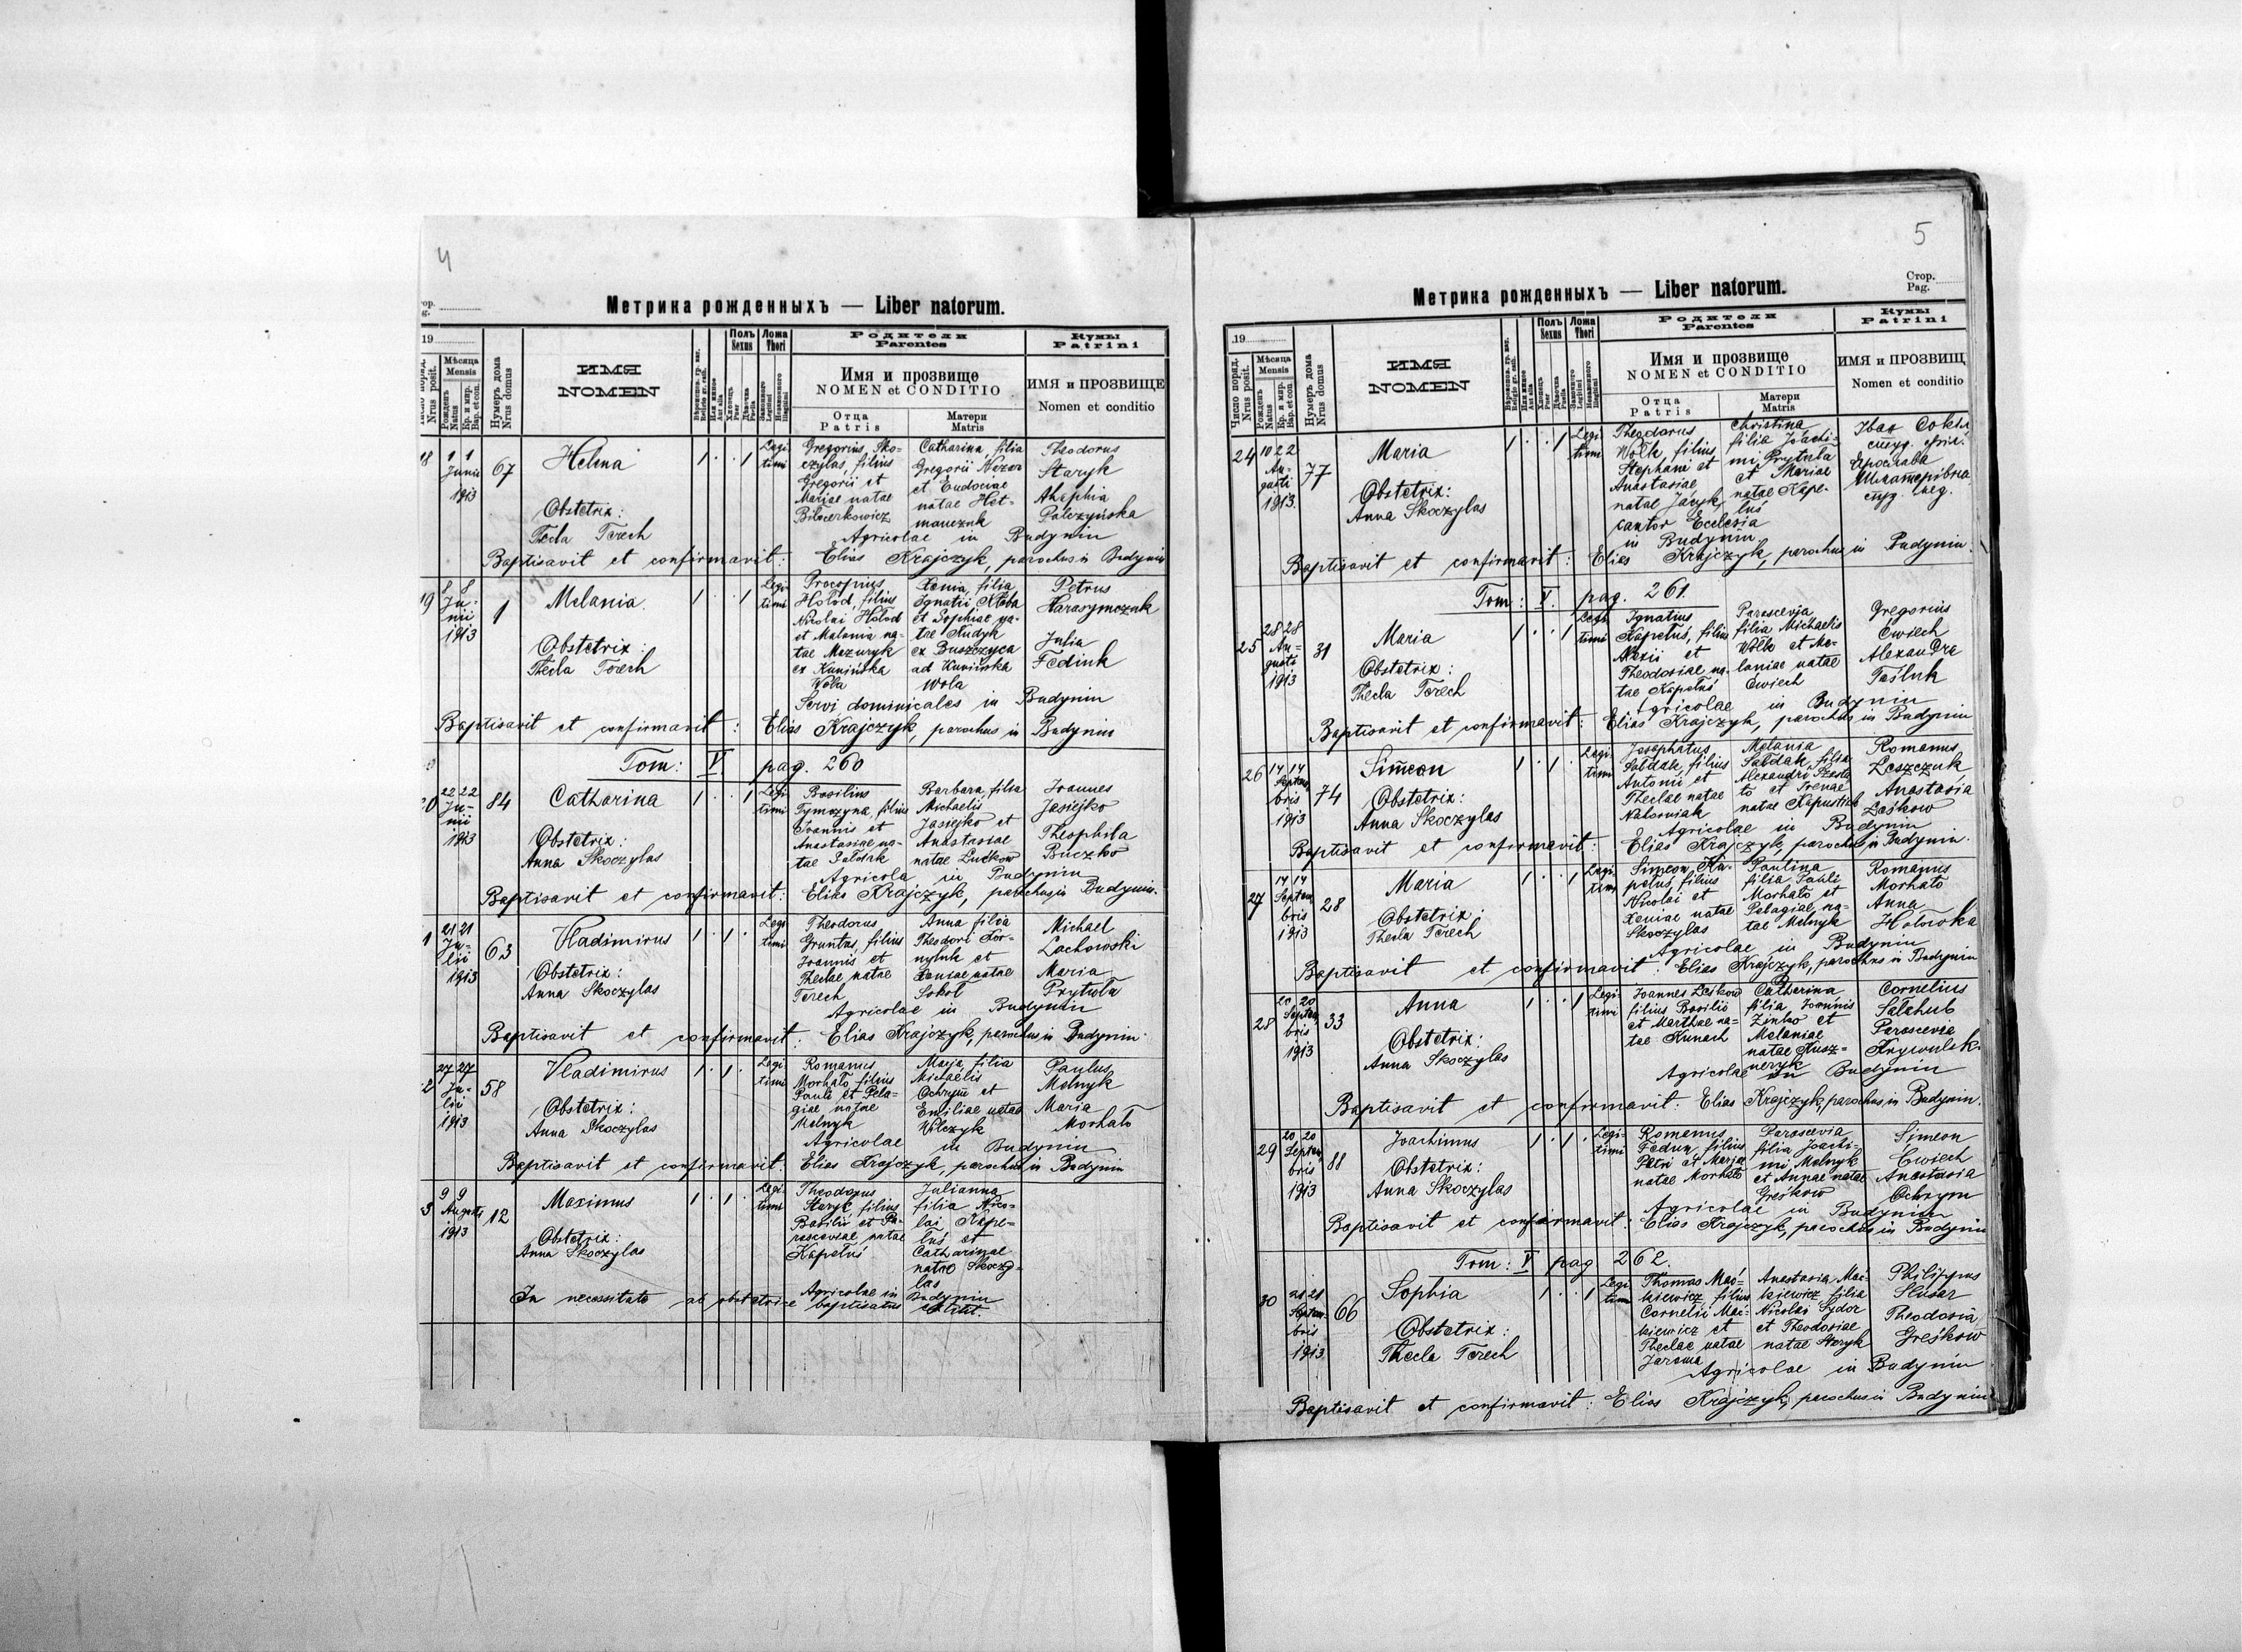 4
Метрика рожденныхъ — Liber natorum.
19
Мѣсяца
Mensis
Нумеръ дома
Nrus domus
ИМЯ
NOMEN
Полъ
Sexus
Ложа
Thori
Родители
Parentes
Кумы
Patrini
Имя и прозвище
NOMEN et CONDITIO
ИМЯ и ПРОЗВИЩЕ
Nomen et conditio
Отца
Patris
Матери
Matris
1 1
Junii
1913
67
Helena
Obstetrix:
Thecla Terech
1 . . 1
Legi
timi
Gregorius Sko-
czylas, filius
Gregorii et
Mariae natae
Bilocerkowicz
Catharina, filia
Gregorii Nazar
et Eudociae
natae Het-
manczuk
Agricolae in Budynin
Theodorus
Staryk
Ahaphia
Palczyńska
Baptisavit et confirmavit: Elias Krajczyk, parochus in Budynin
8 8
Ju-
nii
1913
1
Melania
Obstetrix:
Thecla Terech
1 . . 1
Legi-
timi
Procopius
Hołod, filius
Nicolai Hołod
et Malania na-
tae Mazuryk
ex Kunińska
Wola
Xenia, filia
Ignatii
et Sophiae na-
tae Kudyk
ex Buszczyca
ad Kunińska
Wola
Servi dominicales in Budynin
Petrus
Harasymczuk
Julia
Fedink
Baptisavit et confirmavit: Elias Krajczyk, parochus in Budynin
Tom: V. pag. 260
22 22
Ju-
nii
1913
84
Catharina
Obstetrix:
Anna Skoczylas
1 . . 1
Legi-
timi
Basilius
Tymczyna, filius
Ioannis et
Anastasiae na-
tae Sałdak
Barbara, filia
Michaelis
Jasiejko et
Anastasiae
natae Luckow
Agricola in Budynin
Joannes
Jasiejko
Theophila
Buczko
Baptisavit et confirmavit: Elias Krajczyk, parochus in Budynin.
21 21
Ju-
lii
1913
63
Vladimirus
Obstetrix:
Anna Skoczylas
1 . 1 .
Legi
timi
Theodorus
Gruntus, filius
Joannis et
Theclae natae
Terech
Anna filia
Theodori Kor-
nyluk et
Xeniae natae
Sokoł
Agricolae in Budynin
Michael
Lachowski
Maria
Prytuła
Baptisavit et confirmavit: Elias Krajczyk, parochus in Budynin.
27 27
Ju-
lii
1913
58
Vladimirus
Obstetrix:
Anna Skoczylas
1 . 1 .
Legi
timi
Romanus
Morhało filius
Pauli et Pela-
giae natae
Melnyk
Maria filia
Michaelis
Ochrym et
Emiliae natae
Wilczyk
Agricolae in Budynin
Paulus
Melnyk
Maria
Morhało
Baptisavit et confirmavit: Elias Krajczyk, parochus in Budynin
9 9
Augusti
1913
12
Maximus
Obstetrix:
Anna Skoczylas
1 . 1 .
Legi-
timi
Theodorus
Staryk filius
Basilii et Pa-
rasceviae natae
Kapeluś
Julianna
filia Nico-
lai Kape-
luś et
Catharinae
natae Skoczy-
las
Agricolae in Budynin
In necessitate ab obstetrice baptisatus extitit.
5
Стор.
Pag.
Метрика рожденныхъ — Liber natorum.
19
Число поряд.
Nrus posit.
Мѣсяца
Mensis
Нумеръ дома
Nrus domus
ИМЯ
NOMEN
Полъ
Sexus
Ложа
Thori
Родители
Parentes
Кумы
Patrini
Имя и прозвище
NOMEN et CONDITIO
ИМЯ и ПРОЗВИЩ
Nomen et conditio
Отца
Patris
Матери
Matris
24
10 22
Au-
gusti
1913.
77
Maria
Obstetrix:
Anna Skoczylas
1 . . 1
Legi
timi
Theodorus
Wołk, filius
Stephani et
Anastasiae
natae Jacyk,
cantor Ecclesia
in Budynin
Christina
filia Joachi-
mi Prytuła
et Mariae
natae Kape-
luś
Іван
Baptisavit et confirmavit: Elias Krajczyk, parochus in Budynin.
Tom: V. pag. 261.
25
28 28
Au-
gusti
1913
31
Maria
Obstetrix:
Thecla Terech
1 . . 1
Legi
timi
Ignatius
Kapeluś, filius
Alexii et
Theodosiae na-
tae Kapeluś
Parascevia
filia Michaelis
Wołk et Me-
laniae natae
Ćwiech
Agricolae in Budynin
Gregorius
Ćwiech
Alexandra
Taśluk
Baptisavit et confirmavit: Elias Krajczyk, parochus in Budynin
26
14 14
Septem
bris
1913
74
Simeon
Obstetrix:
Anna Skoczylas
1 . 1 .
Legi-
timi
Josaphatus
Sałdak, filius
Antonii et
Theclae natae
Nakonieczniak
Melania
Sałdak, filia
Alexandri Szosta
to et Irenae
natae Kapustiak
Agricolae in Budynin
Romanus
Leszczuk
Anastasia
Laśkow
Baptisavit et confirmavit: Elias Krajczyk, parochus in Budynin.
27
14 14
Septem
bris
1913
28
Maria
Obstetrix:
Thecla Terech
1 . . 1
Legi-
timi
Simeon Ka-
peluś, filius
Nicolai et
Xeniae natae
Skoczylas
Paulina
filia Pauli
Morhało et
Pelagiae na-
tae Melnyk
Agricolae in Budynin
Romanus
Morhało
Anna
Hołowka
Baptisavit et confirmavit: Elias Krajczyk, parochus in Budynin
28
20 20
Septem
bris
1913
33
Anna
Obstetrix:
Anna Skoczylas
1 . . 1
Legi-
timi
Joannes Leśkow
filius Basilio
et Marthae na-
tae Kunach
Catharina
filia Joannis
Zinko et
Melaniae
natae Kusz-
neryk
Agricolae in Budynin
Cornelius
Sałahub
Parascevia
Krywulsk
Baptisavit et confirmavit: Elias Krajczyk, parochus in Budynin.
29
20 20
Septem
bris
1913
88
Joachimus
Obstetrix:
Anna Skoczylas
1 . 1 .
Legi-
timi
Romanus
Fedun, filius
Petri et Mariae
natae Morhało
Parascevia
filia Joachi-
mi Melnyk
et Annae natae
Greśkow
Agricolae in Budynin
Simeon
Ćwiech
Anastasia
Ochrym
Baptisavit et confirmavit: Elias Krajczyk, parochus in Budynin
Tom: V pag 262.
30
21 21
Septem-
bris
1913
66
Sophia
Obstetrix:
Thecla Terech
1 . . 1
Legi
timi
Thomas Mać-
kiewicz filius
Cornelii Mac-
kiewicz et
Theclae natae
Jarema
Anastasia Mac-
kiewicz filia
Nicolai Sydor
et Theodosiae
natae Staryk
Agricolae in Budynin
Philippus
Slusar
Theodosia
Greśkow
Baptisavit et confirmavit: Elias Krajczyk, parochus in Budynin